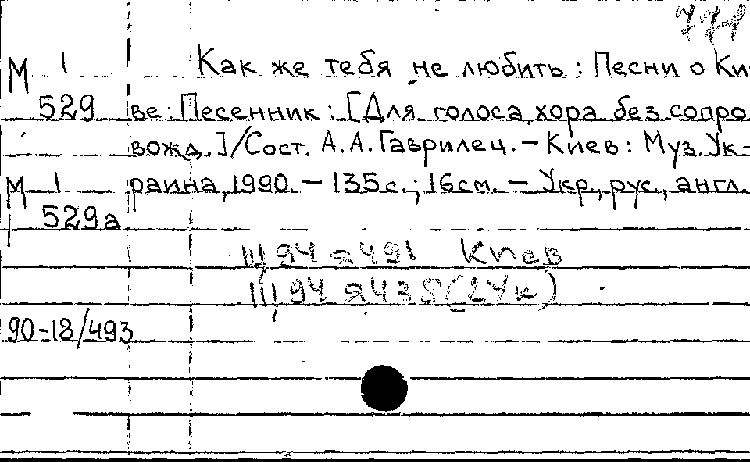 771
М 1 Как же тебя не любить: Песни о Ки-
529 ве: Песенник: [Для голоса, хора без сопро
вожд.]/Сост. А.А.Гаврилец. – Киев: Муз. Ук-
М 1 раина, 1990. – 135с.; 16см. – Укр., рус., англ.
529а
Щ94я491 Киев
Щ94я438(2Ук)
90-18/493